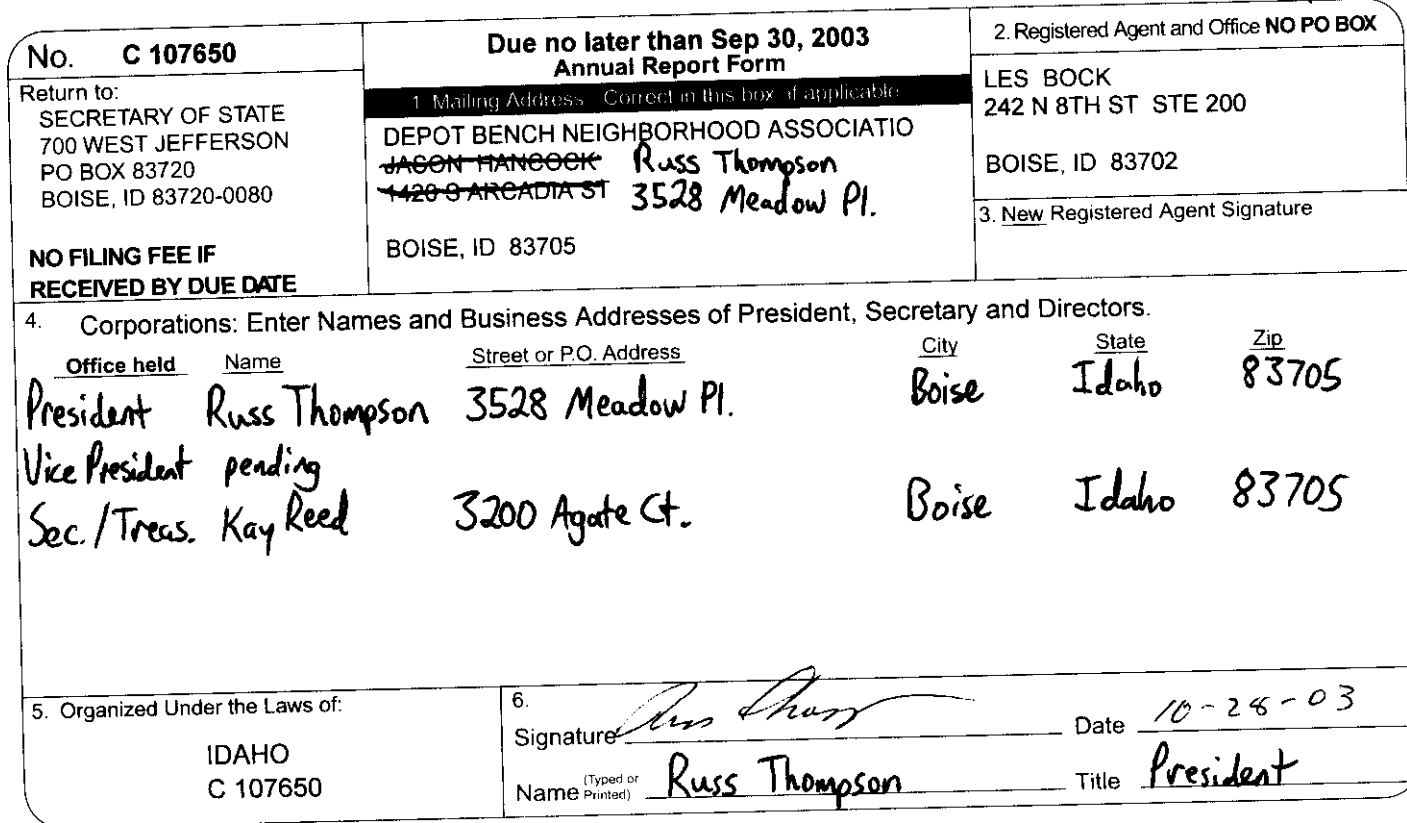 No. C 107650
Return to:
SECRETARY OF STATE
700 WEST JEFFERSON
PO BOX 83720
BOISE, ID 83720-0080
NO FILING FEE IF
RECEIVED BY DUE DATE
Due no later than Sep 30, 2003
Annual Report Form
1. Mailing Address. Correct in this box if applicable.
DEPOT BENCH NEIGHBORHOOD ASSOCIATIO
JASON HANCOCK Russ Thompson
1420 S ARCADIA ST 3528 Meadow Pl.
BOISE, ID 83705
2. Registered Agent and Office NO PO BOX
LES BOCK
242 N 8TH ST STE 200
BOISE, ID 83702
3. New Registered Agent Signature
4. Corporations: Enter Names and Business Addresses of President, Secretary and Directors.
Office held Name Street or P.O. Address City State Zip
President Russ Thompson 3528 Meadow Pl. Boise Idaho 83705
Vice President pending
Sec./Treas. Kay Reed 3200 Agate Ct. Boise Idaho 83705
5. Organized Under the Laws of:
IDAHO
C 107650
6.
Signature Russ Thompson Date 10-28-03
Name (Typed or Printed) Russ Thompson Title President